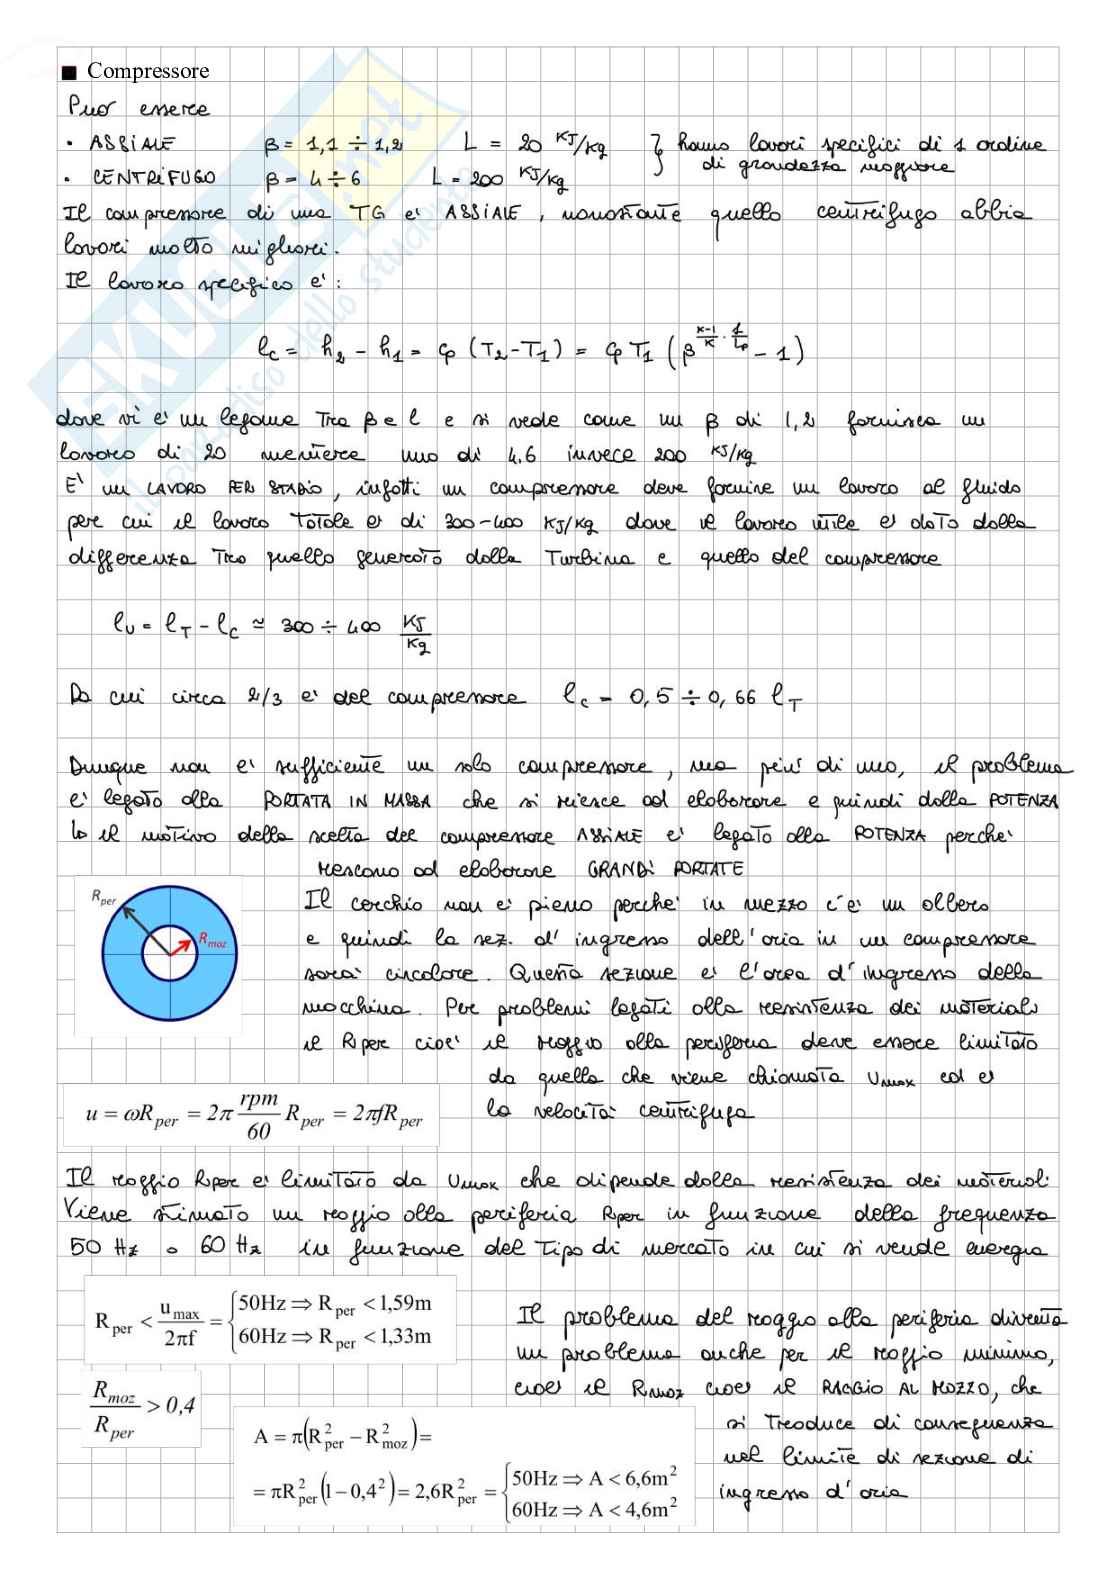 ■ Compressore
Può essere
• ASSIALE β = 1,1 ÷ 1,2 L = 20 KJ/Kg } hanno lavori specifici di 1 ordine
di grandezza maggiore
• CENTRIFUGO β = 4 ÷ 6 L = 200 KJ/Kg
Il compressore di una TG e' ASSIALE, nonostante quello centrifugo abbia
lavori molto migliori.
Il lavoro specifico e' :
lc = h2 - h1 = cp (T2-T1) = cp T1 (β^(K-1/K · 1/ηp) - 1)
dove vi e' un legame tra β e l e si vede come un β di 1,2 fornisca un
lavoro di 20 mentre uno di 4.6 invece 200 KJ/Kg
E' un LAVORO PER STADIO, infatti un compressore deve fornire un lavoro al fluido
per cui il lavoro totale e' di 300-400 KJ/Kg dove il lavoro utile e' dato dalla
differenza tra quello generato dalla Turbina e quello del compressore
lU = lT - lC ≃ 300 ÷ 400 KJ/Kg
Da cui circa 2/3 e' del compressore lc = 0,5 ÷ 0,66 lT
Dunque non e' sufficiente un solo compressore, ma piu' di uno, il problema
e' legato alla PORTATA IN MASSA che si riesce ad elaborare e quindi dalla POTENZA
↳ il motivo della scelta del compressore ASSIALE e' legato alla POTENZA perche'
riescono ad elaborare GRANDI PORTATE
Rper
Rmoz
Il cerchio non e' pieno perche' in mezzo c'e' un albero
e quindi la sez. d'ingresso dell'aria in un compressore
sara' circolare. Questa sezione e' l'area d'ingresso della
macchina. Per problemi legati alla resistenza dei materiali
il Rper cioe' il raggio alla periferia deve essere limitato
da quella che viene chiamata Umax ed e'
la velocita' centrifuga
u = ωRper = 2π rpm/60 Rper = 2πfRper
Il raggio Rper e' limitato da Umax che dipende dalla resistenza dei materiali
Viene stimato un raggio alla periferia Rper in funzione della frequenza
50 Hz o 60 Hz in funzione del tipo di mercato in cui si vende energia
Rper < umax/2πf = { 50Hz ⇒ Rper < 1,59m
60Hz ⇒ Rper < 1,33m
Il problema del raggio alla periferia diventa
un problema anche per il raggio minimo,
cioe' il Rmoz cioe' il RAGGIO AL MOZZO, che
si traduce di conseguenza
nel limite di sezione di
ingresso d'aria
Rmoz/Rper > 0,4
A = π(R²per − R²moz) =
= πR²per(1 − 0,4²) = 2,6R²per = { 50Hz ⇒ A < 6,6m²
60Hz ⇒ A < 4,6m²
SKUOLA.net
il paradiso dello studente